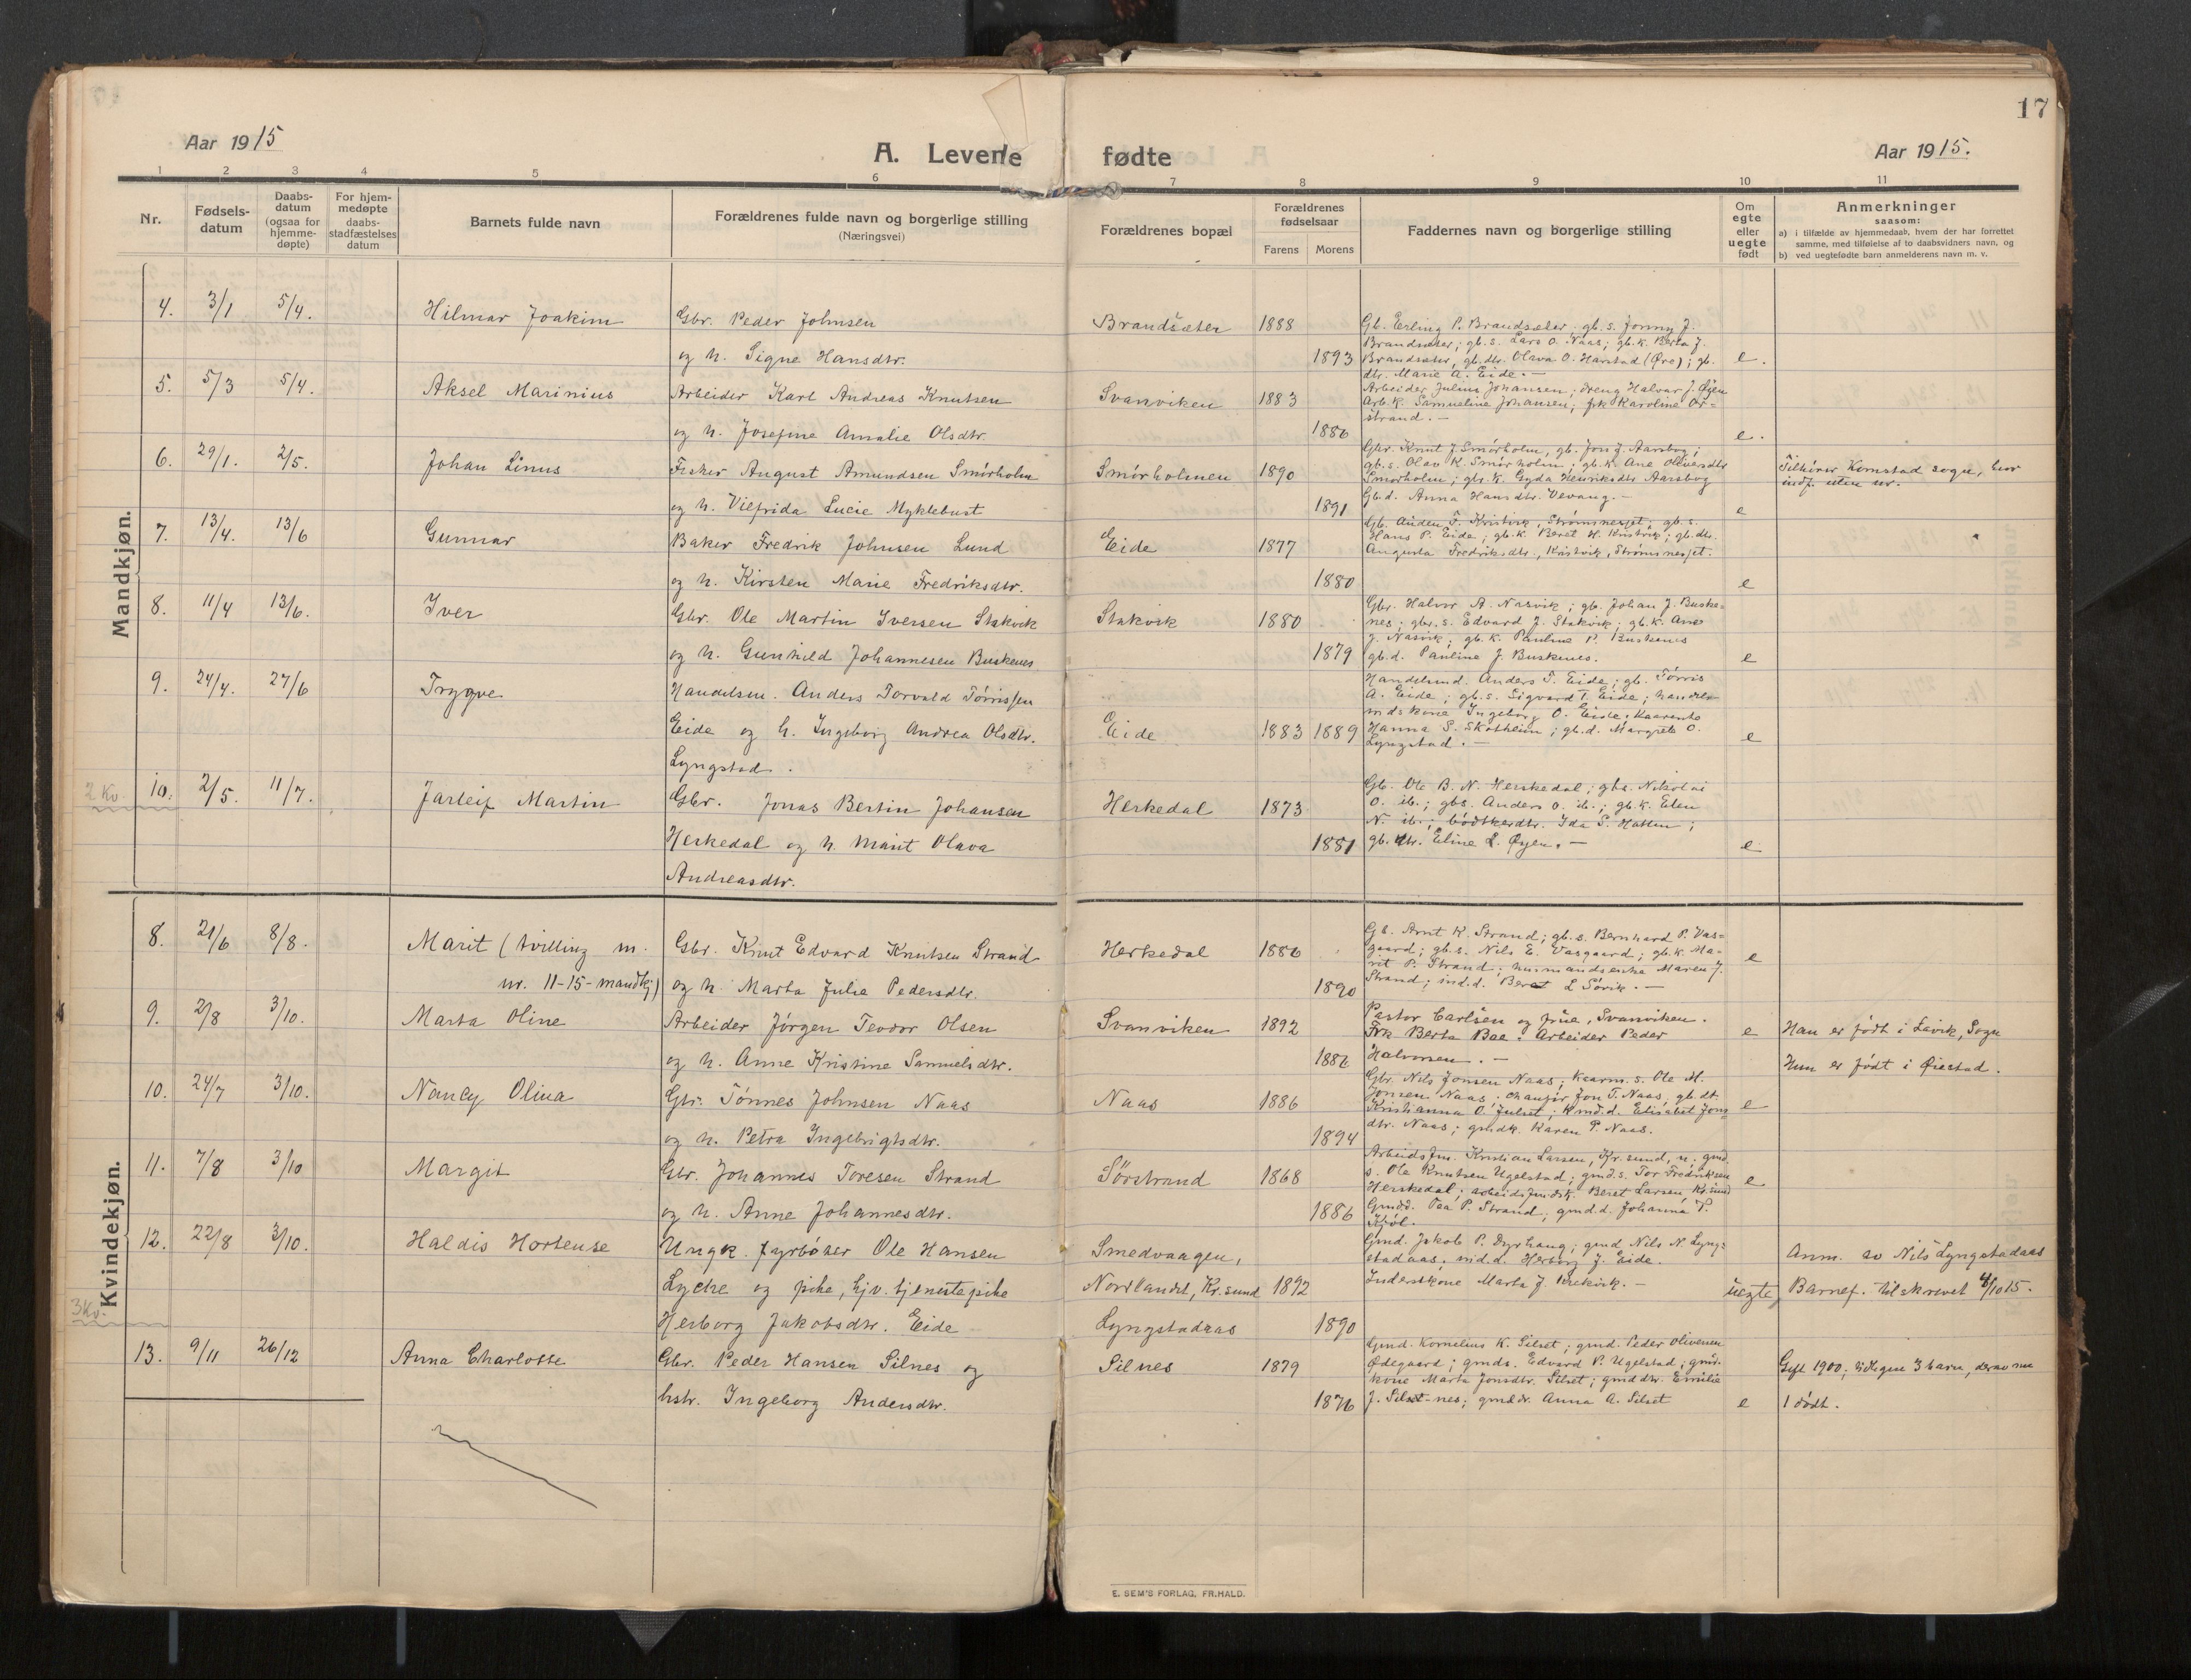 17
Aar 1915
A. Levende fødte
Aar 1915.
1 2 3 4 5 6 7 8 9 10 11
Nr.
Fødsels-
datum
Daabs-
datum
(ogsaa for
hjemme-
døpte)
For hjem-
medøpte
daabs-
stadfæstelses
datum
Barnets fulde navn
Forældrenes fulde navn og borgerlige stilling
(Næringsvei)
Forældrenes bopæl
Forældrenes
fødselsaar
Farens Morens
Faddernes navn og borgerlige stilling
Om
egte
eller
uegte
født
Anmerkninger
saasom:
a) i tilfælde av hjemmedaab, hvem der har forrettet
samme, med tilføielse af to daabsvidners navn, og
b) ved uegtefødte barn anmelderens navn m. v.
Mandkjøn.
4. 3/1 5/4. Hilmar Joakim Gbr. Peder Johnsen Brandsæter 1888
og h. Signe Hansdtr. 1893 e.
Gb. Erling P. Brandsæter; gb. s. Jonny J.
Brandsæter; gb. s. Lars O. Naas; gb. k. Berta J.
Brandsæter, gb. dtr. Olava O. Harstad (Øre); gb.
dtr. Marie A. Eide. —
5. 5/3 5/4. Aksel Marinius Arbeider Karl Andreas Knutsen Svanviken 1883
og h. Josefine Amalie Olsdtr. 1886 e.
Arbeider Julius Johansen; dreng Halvar J. Øyen
Arb. k. Samueline Johansen; frk Karoline Ør-
strand. —
6. 29/1. 2/5. Johan Linus Fisker August Amundsen Smörholm Smörholmen 1890
og h. Vilfrida Lucie Myklebust 1891 e
Gbr. Knut J. Smörholm, gb. Jon J. Aarsbog;
gb. s. Olav K. Smörholm; gb. k. Ane Oliversdtr
Smörholm; gbr. k. Gyda Henriksdtr Aarsbog
Gb. d. Anna Hansdtr. Vevang. —
Tilhörer Kornstad sogn, her
indf. uten nr.
7. 13/4. 13/6 Gunnar Baker Fredrik Johnsen Lund Eide 1877
og h. Kirsten Marie Fredriksdtr. 1880 e
Gb. Auden F. Kristvik, Strømsneset; gb. s.
Hans P. Eide; gb. k. Beret H. Kristvik; gb. dtr.
Augusta Fredriksdtr., Kristvik, Strømsneset.
8. 11/4 13/6. Iver Gbr. Ole Martin Iversen Stakvik Stakvik 1880
og h. Gunhild Johannesen Buskenes 1879 e
Gbr. Halvor A. Nasvik; gb. Johan J. Buske-
nes; gbr. s. Edvard J. Stakvik; gb. k. Ane
J. Nasvik; gb. k. Pauline P. Buskenes
gb. d. Pauline J. Buskenes.
9. 24/4. 27/6 Trygve Handelsm. Anders Torvald Törrissen
Eide og h. Ingeborg Andrea Olsdtr. Eide 1883 1889 e
Lyngstad.
Handelsmd. Anders T. Eide; gb. Törris
A. Eide; gb. s. Sigvard T. Eide; handels-
mdskone Ingeborg O. Eide;
Hanna S. Skotheim; gb. d. Margrete O.
Lyngstad. —
2 Kv.
10. 2/5. 11/7. Jarleif Martin Gbr. Jonas Bertin Johansen Herkedal 1873
Herkedal og h. Marit Olava 1881 e
Andreasdtr.
Gb. Ole B. N. Herskedal; gbs. Nikolai
O. ib.; gbs. Anders O. ib.; gb. k. Elen
N. ib.; bödtkerdtr. Ida P. Hatlen;
gb. dtr. Eline L. Øyen. —
Kvindekjøn.
8. 21/6 8/8. Marit (tvilling m. Gbr. Knut Edvard Knutsen Strand Herkedal 1886 e
nr. 11-15-mandkj) og h. Marta Julie Pedersdtr. 1890
Gb. Arnt K. Strand; gb. s. Bernhard P. Vas-
gaard; gb. s. Nils E. Vasgaard; gb. k. Ma-
rit P. Strand; husmandsenke Maren J.
Strand; ind. d. Beret L Sövik. —
9. 2/8 3/10. Marta Oline Arbeider Jörgen Teodor Olsen Svanviken 1892 e
og h. Anne Kristine Samuelsdtr. 1886
Pastor Carlsen og frue, Svanviken.
Frk Berta Boe. Arbeider Peder
Halvorsen. —
Han er født i Lavik, Sogn
Hun er født i Øiestad.
10. 24/7 3/10. Nancy Olina Gbr. Tönnes Johnsen Naas Naas 1886 e
og h. Petra Ingebrigtsdtr. 1894
Gbr. Nils Jonsen Naas; kaarm. s. Ole M.
Jonsen Naas; chauför Jon T. Naas, gb. dt.
Kristianna O. Julset; kmd. d. Elisabet Jons
dtr. Naas; gmdk. Karen P. Naas.
11. 7/8 3/10 Margit Gbr. Johannes Toresen Strand Sörstrand 1868 e
og h. Anne Johannesdtr. 1886
Arbeidsfm. Kristian Larsen, Kr.sund, n. gmd.
s. Ole Knutsen Ugelstad; gmd. s. Tor Fredriksen
Herskedal; arbeidsfmdsk. Beret Larsen, Kr.sund
Gmdd. Pea P. Strand; gmd.d. Johanna P.
Kjöl.
12. 22/8 3/10. Haldis Hortense Ungk. fyrböter Ole Hansen Smedvaagen,
Lycke og pike, hjv. tjenestepike Nordlandet, Kr.sund 1892 uegte
Herborg Jakobsdtr. Eide Lyngstadaas 1890
Gmd. Jakob P. Dyrhaug; gmd Nils N. Lyng-
stadaas; ind.d. Herborg J. Eide.
Inderstkone Marta J. —
Anm. av Nils Lyngstadaas
Barnef. tilskrevet 4/10 15.
3 Kv.
13. 9/11 26/12 Anna Charlotte Gbr. Peder Hansen Silnes og Silnes 1879
hstr. Ingeborg Andersdtr. 1876 e
Gmd. Kornelius K. Silset; gmd. Peder Oliversen
Ødegaard; gmds. Edvard P. Ugelstad; gmd.
kone Marta Jonsdtr. Silset; gmddtr. Emilie
J. Silset-nes; gmddr. Anna A. Silset
Gift 1900; tidligere 3 barn, derav nu
1 dödt.
E. SEM'S FORLAG, FR.HALD.